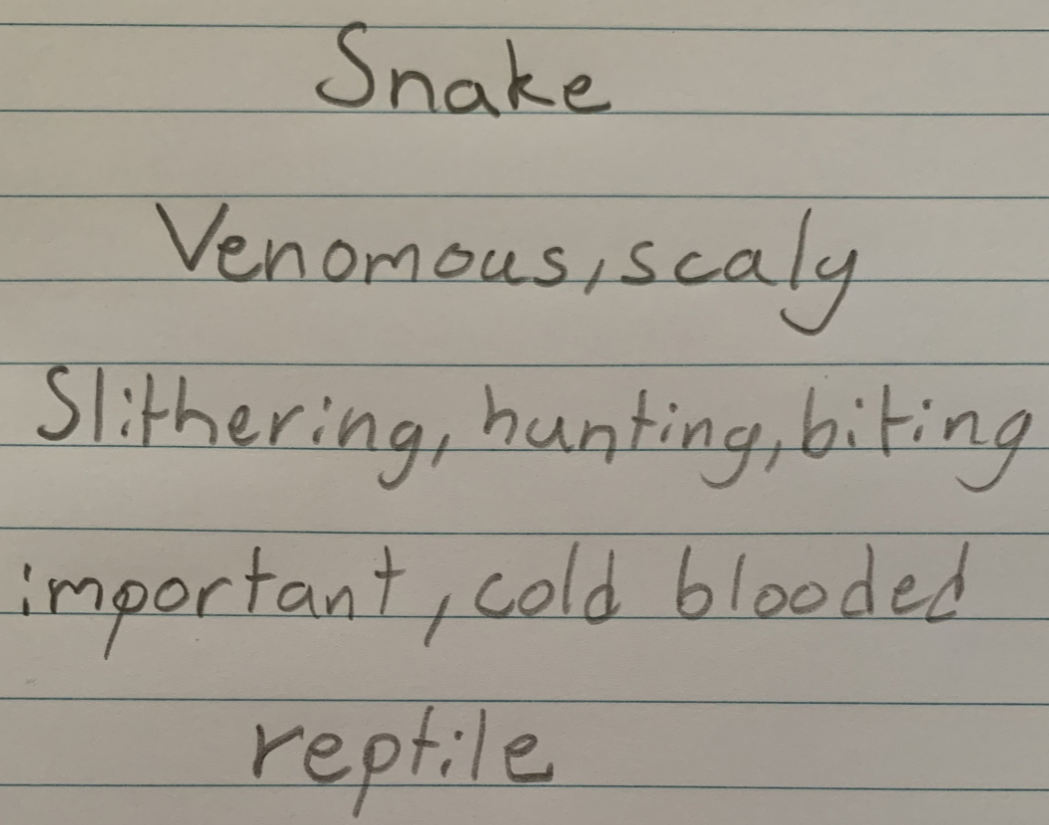 Snake
Venomous, scaly
Slithering, hunting, biting
important, cold blooded
reptile